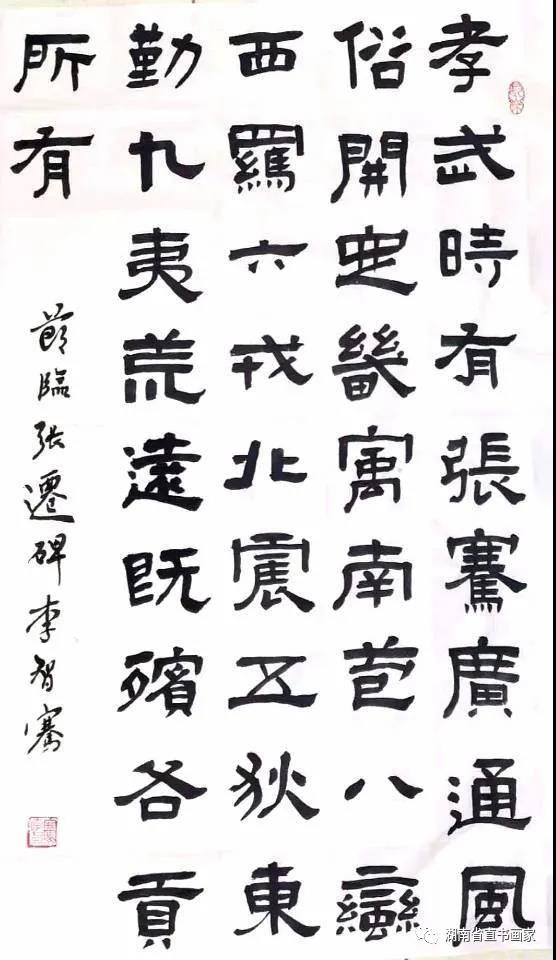 孝武時有張騫廣通風
俗開定畿寓南苞八蠻
西羈六戎北震五狄東
勤九夷荒遠既殯各貢
所有
節臨張遷碑李智
湖南省直书画家